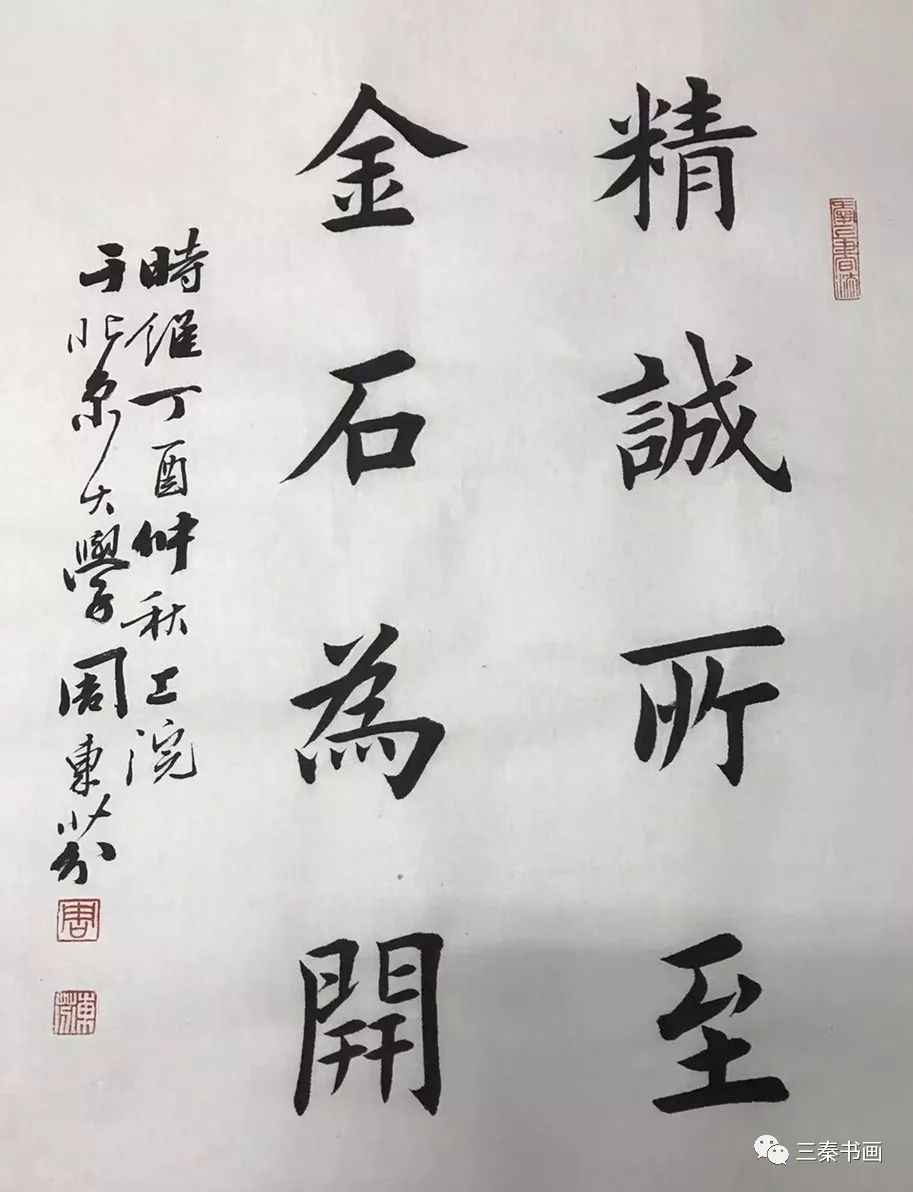 精誠所至
金石為開
時維丁酉仲秋上浣
于北京大學周東芬
周
三秦书画